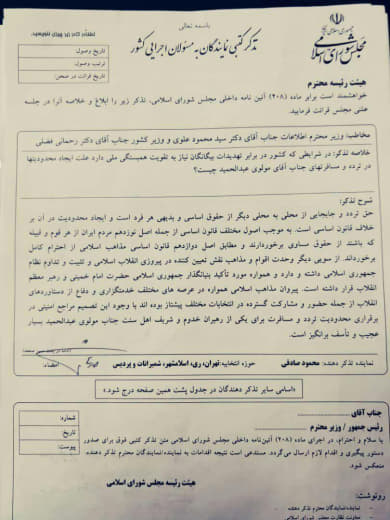 باسمه تعالی
جمهوری اسلامی ایران
مجلس شورای اسلامی
تذکر کتبی نمایندگان به مسئولان اجرایی کشور
لطفاً در کادر زیر چیزی ننویسید.
تاریخ وصول
ترتیب وصول
تاریخ قرائت در صحن:
هیئت رئیسه محترم
خواهشمند است برابر ماده (۲۰۸) آئین نامه داخلی مجلس شورای اسلامی، تذکر زیر را ابلاغ و خلاصه آنرا در جلسه
علنی مجلس قرائت فرمایید.
مخاطب: وزیر محترم اطلاعات جناب آقای دکتر سید محمود علوی و وزیر کشور جناب آقای دکتر رحمانی فضلی
خلاصه تذکر: در شرایطی که کشور در برابر تهدیدات بیگانگان نیاز به تقویت همبستگی ملی دارد علت ایجاد محدودیتها
در تردد و مسافرتهای جناب آقای مولوی عبدالحمید چیست؟
شرح تذکر:
حق تردد و جابجایی از محلی به محلی دیگر از حقوق اساسی و بدیهی هر فرد است و ایجاد محدودیت در آن بر
خلاف قانون اساسی است. به موجب اصول مختلف قانون اساسی از جمله اصل نوزدهم مردم ایران از هر قوم و قبیله
که باشند از حقوق مساوی برخوردارند و مطابق اصل دوازدهم قانون اساسی مذاهب اسلامی از احترام کامل
برخوردارند. از سویی دیگر وحدت اقوام و مذاهب نقش تعیین کننده در پیروزی انقلاب اسلامی و تثبیت و تداوم نظام
جمهوری اسلامی داشته و دارد و همواره مورد تأکید بنیانگذار جمهوری اسلامی حضرت امام خمینی و رهبر معظم
انقلاب قرار داشته است. پیروان مذاهب اسلامی همواره در عرصه های مختلف خدمتگزاری و دفاع از دستاوردهای
انقلاب از جمله حضور و مشارکت گسترده در انتخابات مختلف پیشتاز بوده اند با وجود این تصمیم مراجع امنیتی در
برقراری محدودیت تردد و مسافرت برای یکی از رهبران خدوم و شریف اهل سنت جناب مولوی عبدالحمید بسیار
عجیب و تأسف برانگیز است.
نماینده تذکر دهنده: محمود صادقی حوزه انتخابیه: تهران، ری، اسلامشهر، شمیرانات و پردیس امضاء:
«اسامی سایر تذکر دهندگان در جدول پشت همین صفحه درج شود.»
جناب آقای
رئیس جمهور / وزیر محترم
شماره:
تاریخ:
پیوست:
با سلام و احترام، در اجرای ماده (۲۰۸) آئین‌نامه داخلی مجلس شورای اسلامی متن تذکر کتبی فوق برای صدور
دستور پیگیری و اقدام لازم ارسال می‌گردد. مستدعی است نتیجه اقدامات به نماینده/نمایندگان محترم تذکر دهنده
منعکس شود.
هیئت رئیسه مجلس شورای اسلامی
رونوشت:
نماینده/نمایندگان محترم تذکر دهنده
معاونت نظارت مجلس شورای اسلامی